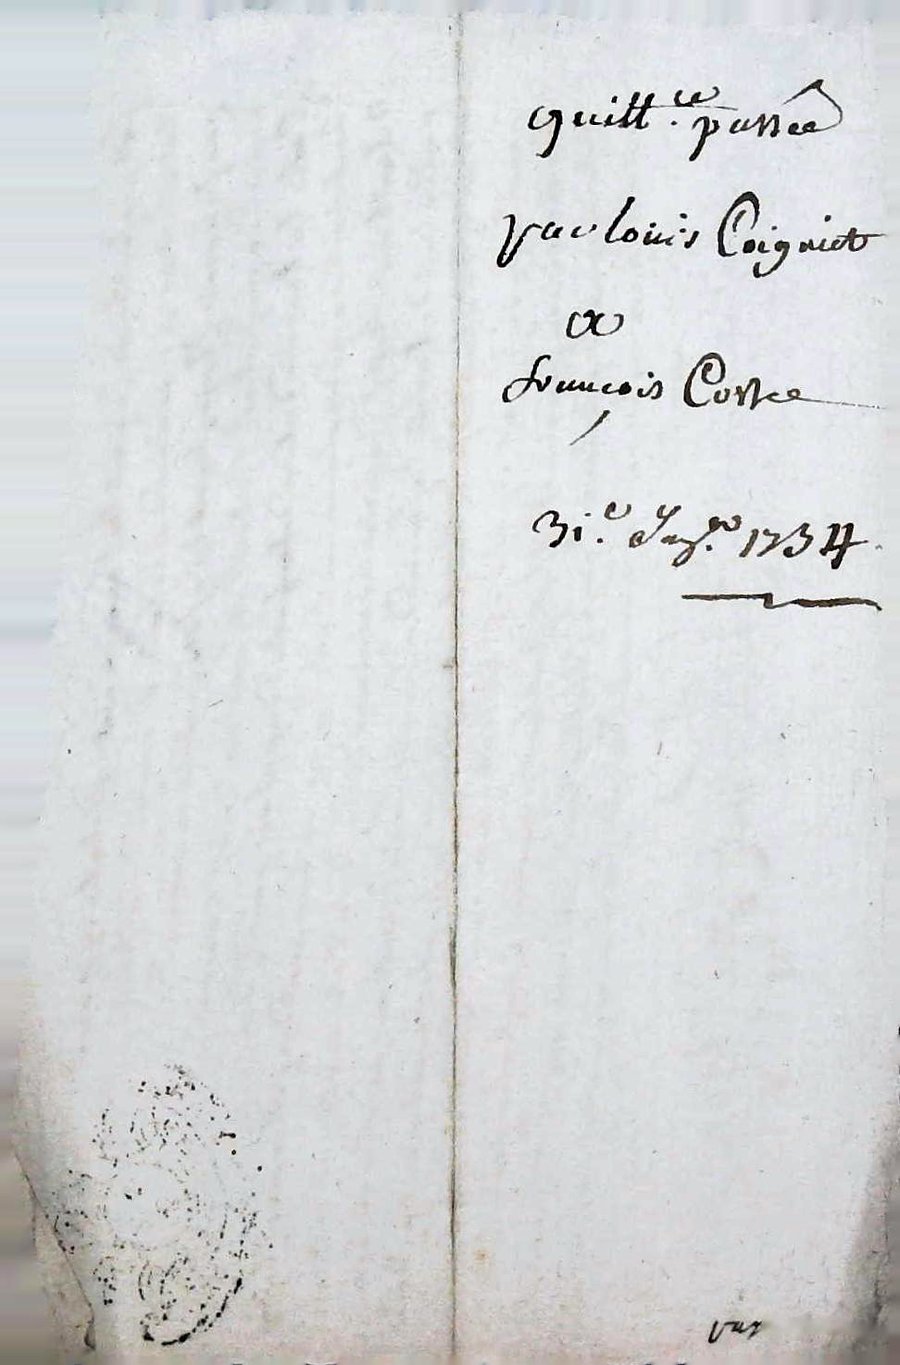 quitt.ce passée
par louis Coigniet
a
francois Coste
31.e 1734